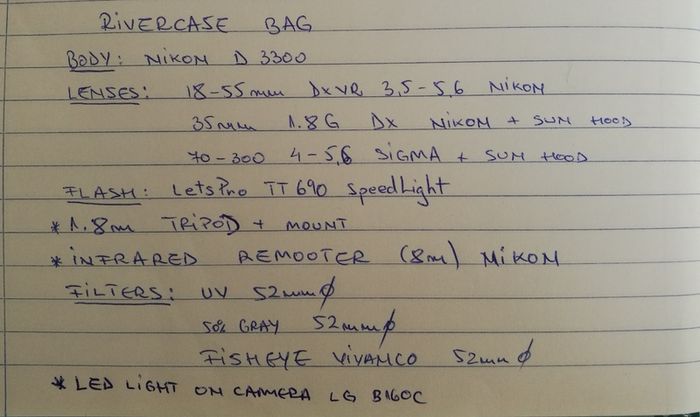 RIVERCASE BAG
BODY: NIKON D 3300
LENSES: 18-55mm DX VR 3,5-5,6 NIKON
35mm 1.8G DX NIKON + SUN HOOD
70-300 4-5,6 SIGMA + SUN HOOD
FLASH: LetsPro TT 690 SpeedLight
* 1.8m TRIPOD + MOUNT
* INFRARED REMOOTER (8m) NIKON
FILTERS: UV 52mm ϕ
50% GRAY 52mm ϕ
FISHEYE VIVANCO 52mm ϕ
* LED LIGHT ON CAMERA LG B160C